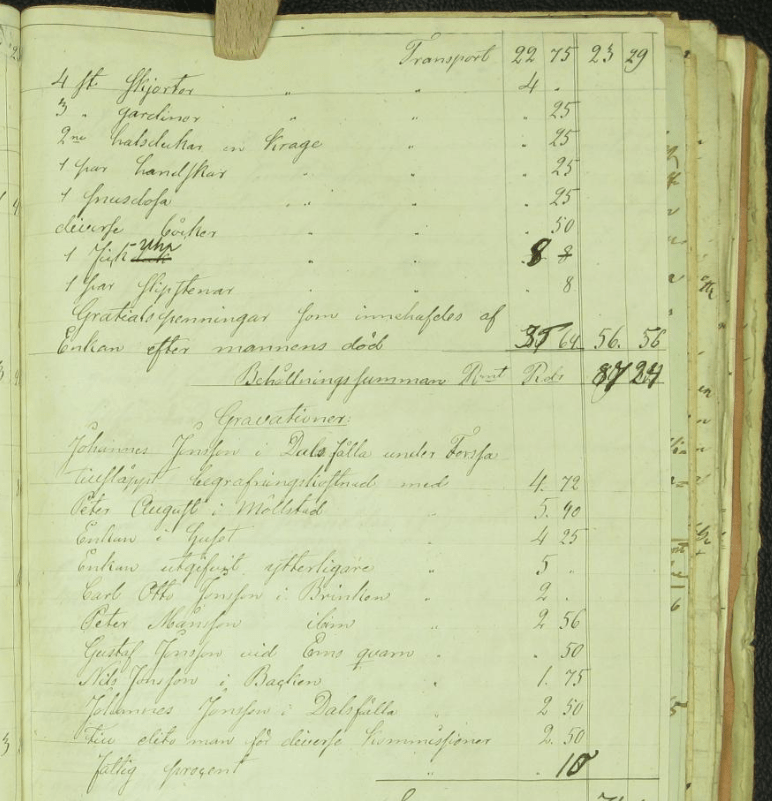 Transport 22 75 23 29
4 st. Skjortor " " 4 .
3 " gardiner " " . 25
2ne halsdukar en Krage " . 25
1 par handskar " " . 25
1 snusdosa " " . 25
diverse böcker " . 50
1 fick uhr " " 8
1 par Slipstenar " " . 8
Gratialspenningar som innehafdes af
Enkan efter mannens död 35 64 56. 56
Behållningssumman Rmt Rds 87 24
Gravationer:
Johannes Jonsson i Dalsfälla under Forssa
begrafningskostnad med 4. 72
Peter August i Möllstad 5. 40
Enkan i huset " 4 25
Enkan utgifvit ytterligare " 5 "
Carl Otto Jonsson i Brinken " 2 .
Peter Månsson ibm " 2 56
Gustaf Jonsson vid Ems quarn " . 50
Nils Jonsson i Backen " 1. 75
Johannes Jonsson i Dalsfälla " 2 50
ditto man för diverse Kommissioner 2. 50
fattig procent " . 10